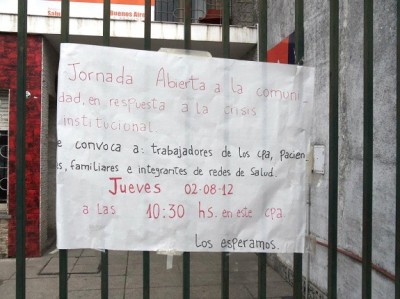 Buenos Aires
Jornada Abierta a la comuni_
dad, en respuesta a la crisis
institucional
e convoca a: trabajadores de los cpa, pacien
s, familiares e integrantes de redes de Salud.
Jueves 02-08-12
a las 10:30 hs. en este cpa
Los esperamos.